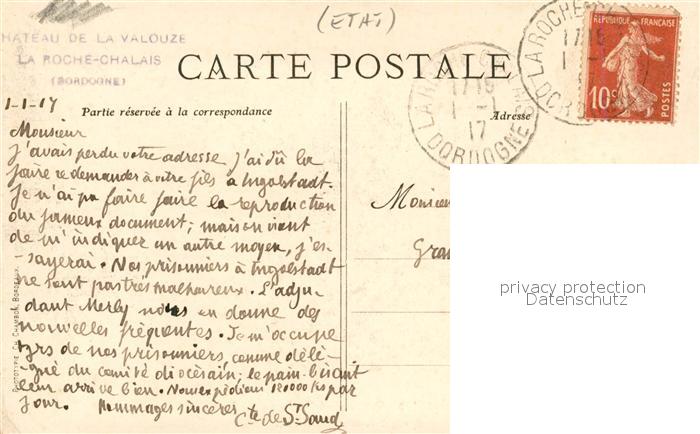 (ETAT)
CHATEAU DE LA VALOUZE
LA ROCHE-CHALAIS
(DORDOGNE)
CARTE POSTALE
RÉPUBLIQUE FRANÇAISE
10c
POSTES
LA ROCHE
DORDOGNE
17 15
1 - 1
17
1-1-17
Partie réservée à la correspondance
Adresse
Monsieur
j'avais perdu votre adresse j'ai dû la
faire redemander à votre fils à Ingolstadt.
Je n'ai pu faire faire la reproduction
du fameux document; mais on vient
de m'indiquer un autre moyen, j'es-
sayerai. Nos prisonniers à Ingolstadt
ne sont pas très malheureux. L'adju-
dant Merly nous en donne des
nouvelles fréquentes. Je m'occupe
tjrs de nos prisonniers, comme délé-
gué du comité diocésain; le pain biscuit
leur arrive bien. Nous expédions kgs par
jour. Hommages sincères
Cte de St Saud
Monsieur
Gra
PHOTOTYPIE CHAMBON, BORDEAUX
privacy protection
Datenschutz